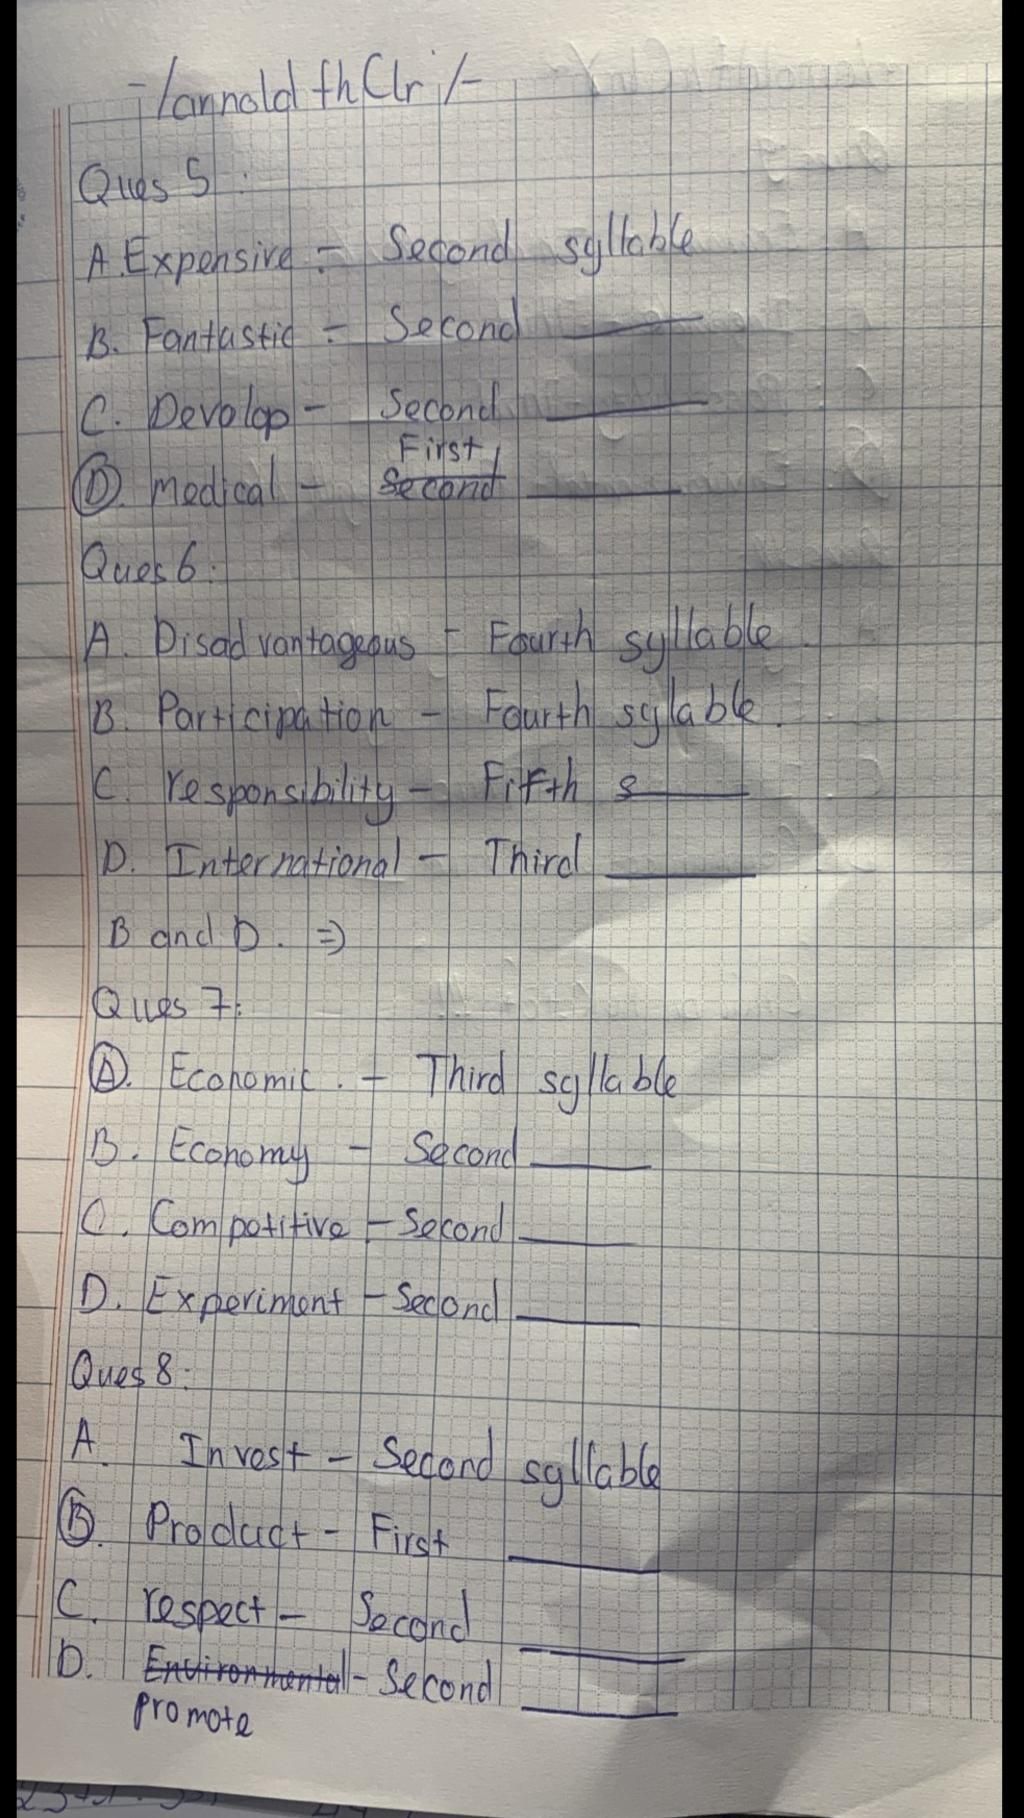 -/annold fh Clr /-
Ques 5 :
A. Expensive - Second syllable
B. Fantastic - Second
C. Devolop - Second
First
D. medical - Second
Ques 6 :
A. Disadvantageous - Fourth syllable
B. Participation - Fourth sylable.
C. responsibility - Fifth s
D. International - Third
B and D. =)
Ques 7 :
A. Economic. - Third syllable
B. Economy - Second
C. Compotitive - Second
D. Experiment - Second
Ques 8 :
A. Invest - Second syllable
B. Product - First
C. respect - Second
D. Environmental - Second
promote